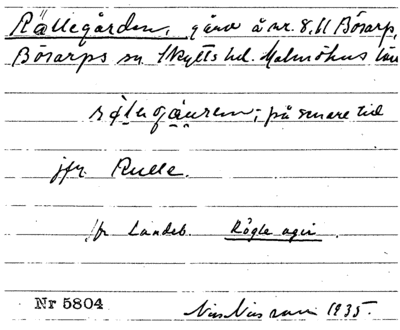 Rällegården, gård å nr. 8, 11 Bösarp,
Bösarps sn Skytts hd. Malmöhus län
på senare tid
jfr. Rulle.
jfr Landeb. Rögle agir.
Nr 5804 1935.